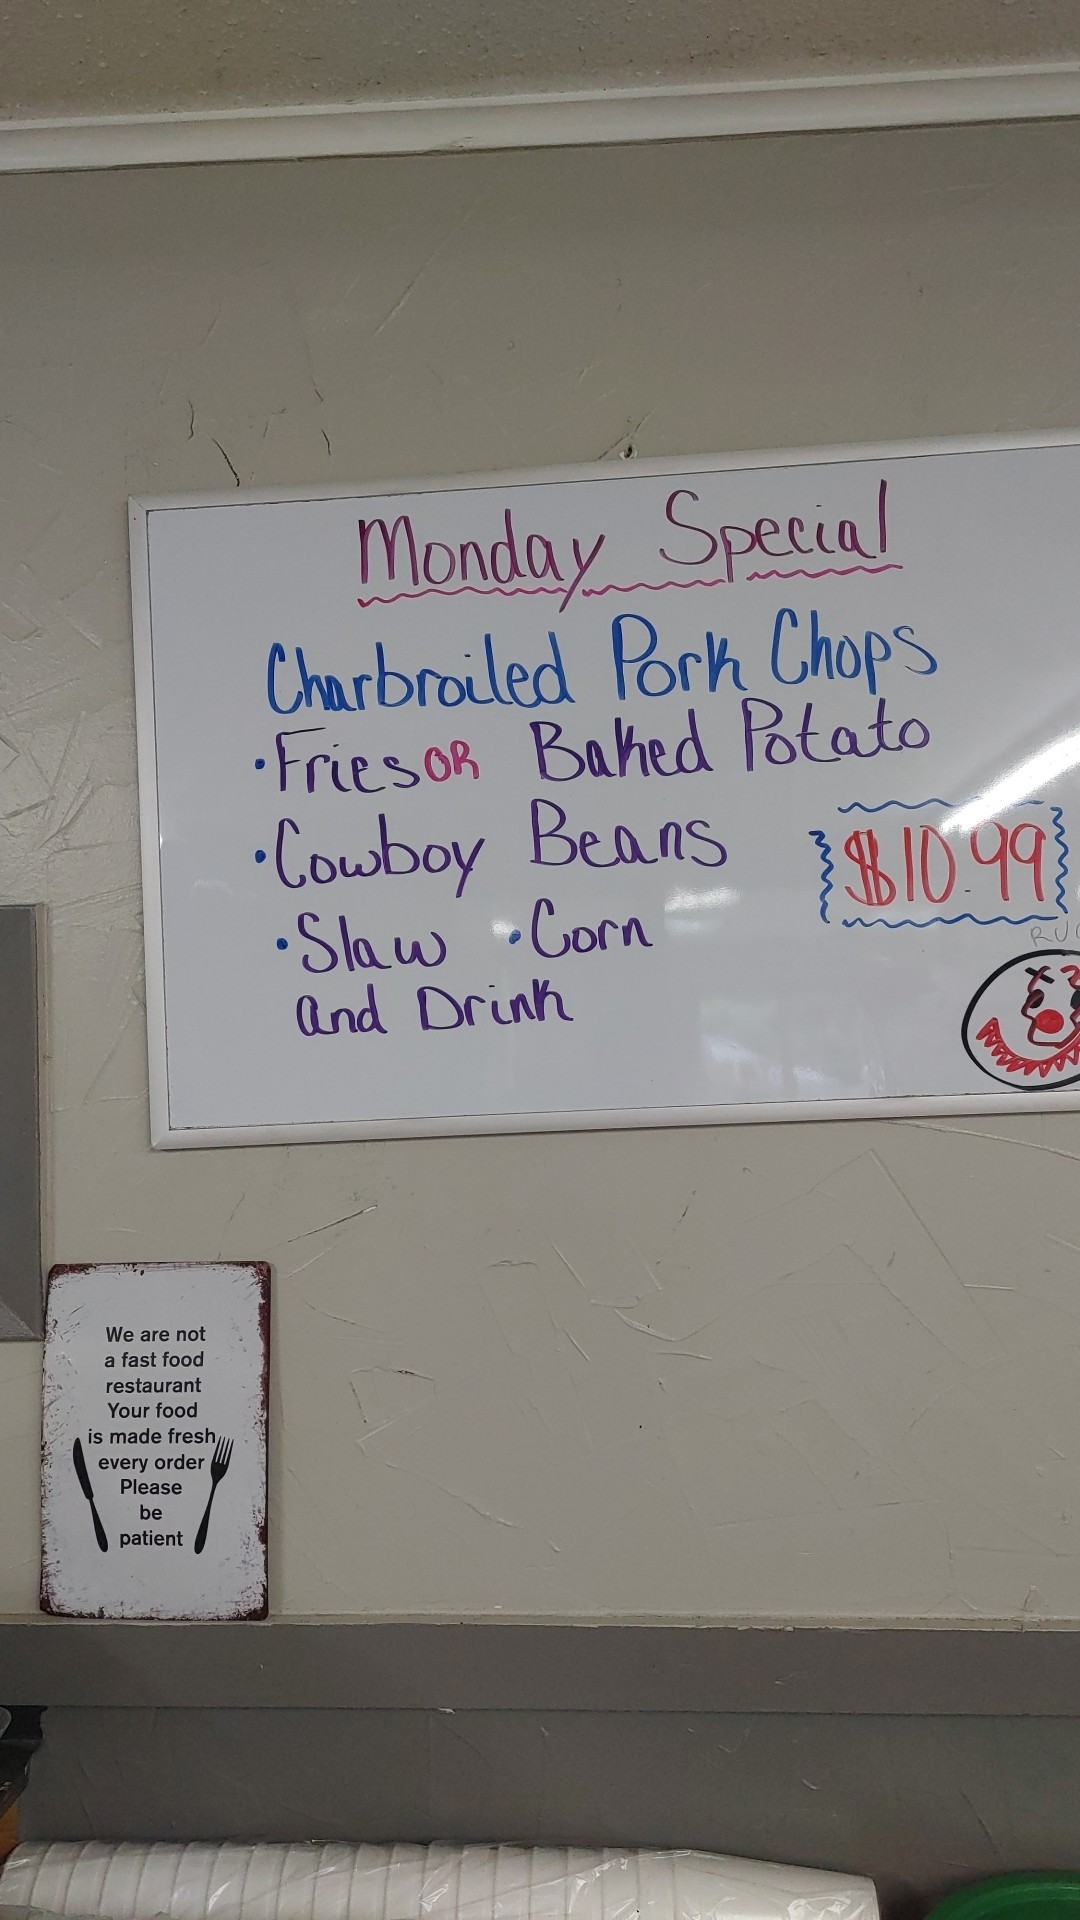 Monday Special
Charbroiled Pork Chops
·Fries OR Baked Potato
·Cowboy Beans
$10.99
·Slaw ·Corn
and Drink
We are not
a fast food
restaurant
Your food
is made fresh
every order
Please
be
patient